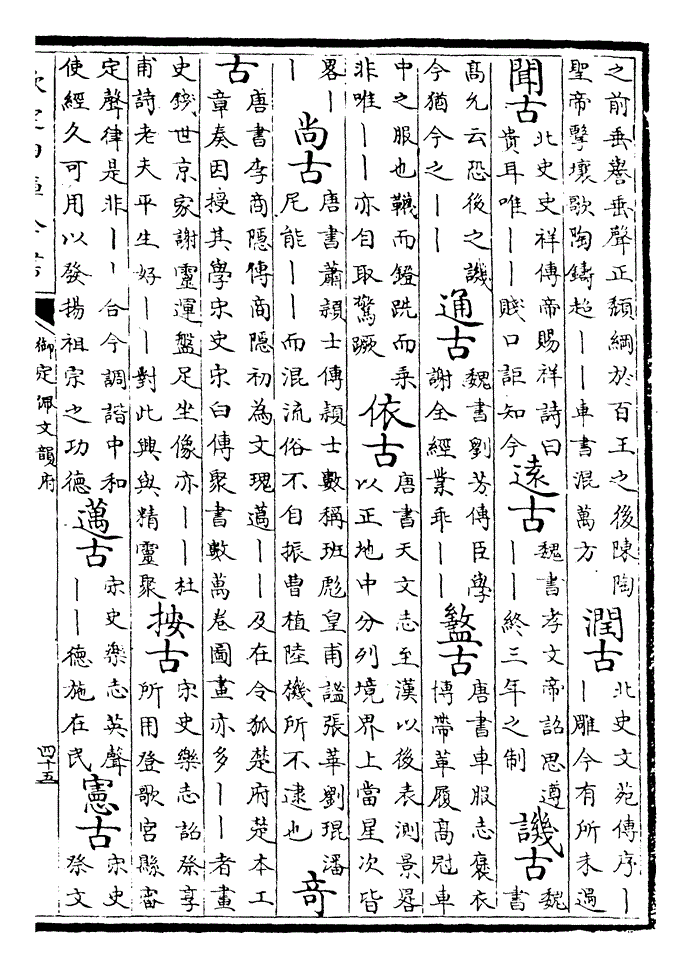 之前垂譽垂聲正頹綱於百王之後陳陶
聖帝擊壤歌陶鑄超丨丨車書混萬方
潤古
北史文苑傳序丨
丨雕今有所未遇
聞古
北史史祥傳帝賜祥詩曰
貴耳唯丨丨賤口詎知今
遠古
魏書孝文帝詔思遵
丨丨終三年之制
譏古
魏
書
高允云恐後之譏
今猶今之丨丨
通古
魏書劉芳傳臣學
謝全經業乖丨丨
盭古
唐書車服志褒衣
博帶革履高冠車
中之服也韈而鐙跣而乗
非唯丨丨亦自取驚蹶
依古
唐書天文志至漢以後表測景晷
以正地中分列境界上當星次皆
畧丨
丨
尚古
唐書蕭穎士傳穎士數稱班彪皇甫謐張華劉琨潘
尼能丨丨而混流俗不自振曹植陸機所不逮也
奇
古
唐書李商隱傳商隱初為文瑰邁丨丨及在令狐楚府楚本工
章奏因授其學宋史宋白傳聚書數萬卷圖畫亦多丨丨者畫
史錢世京家謝靈運盤足坐像亦丨丨杜
甫詩老夫平生好丨丨對此興與精靈聚
按古
宋史樂志詔祭享
所用登歌宮縣審
定聲律是非丨丨合今調諧中和
使經久可用以發揚祖宗之功德
邁古
宋史樂志英聲
丨丨德施在民
憲古
宋史
祭文
御定佩文韻府
四十五